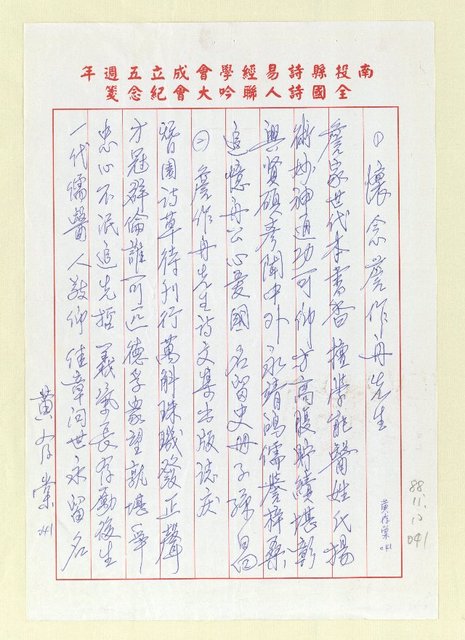 南投縣詩易經學會成立五週年
全國詩人聯吟大會紀念箋
① 懷念詹作舟先生
詹家世代本書香 擅學能醫姓氏揚
術妙神通功可仰 才高腹貯績堪彰
興賢碩彥聞中外 永靖鴻儒譽梓桑
追憶舟公心愛國 名留史冊子孫昌
詹作舟先生詩文集出版誌慶
園詩草待刊行 萬斛珠璣發正聲
才冠群倫誰可匹 德孚衆望孰堪爭
忠心不泯追先哲 義氣長存勵後生
一代儒醫人敬仰 佳章問世永留名
黃存棠 041
黃存棠 041
88.11.12
041